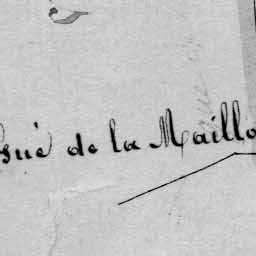 snié de la Maillo